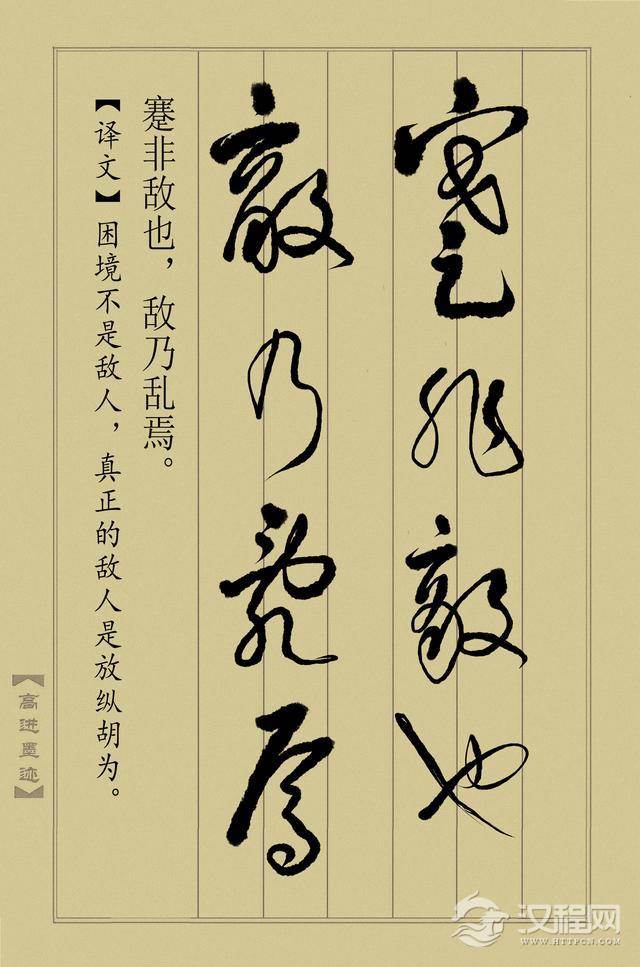 蹇非敌也
敌乃乱焉
蹇非敌也，敌乃乱焉。
【译文】困境不是敌人，真正的敌人是放纵胡为。
【高进墨迹】
汉程网
WWW.HTTPCN.COM